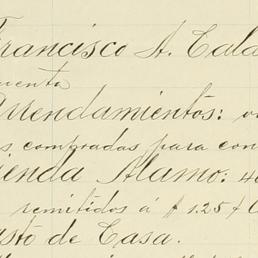 Francisco A. Cala
uenta
Arrendamientos:
s compradas para con
ienda Alamo: 4
remitidos á $1.25
sto de Casa.